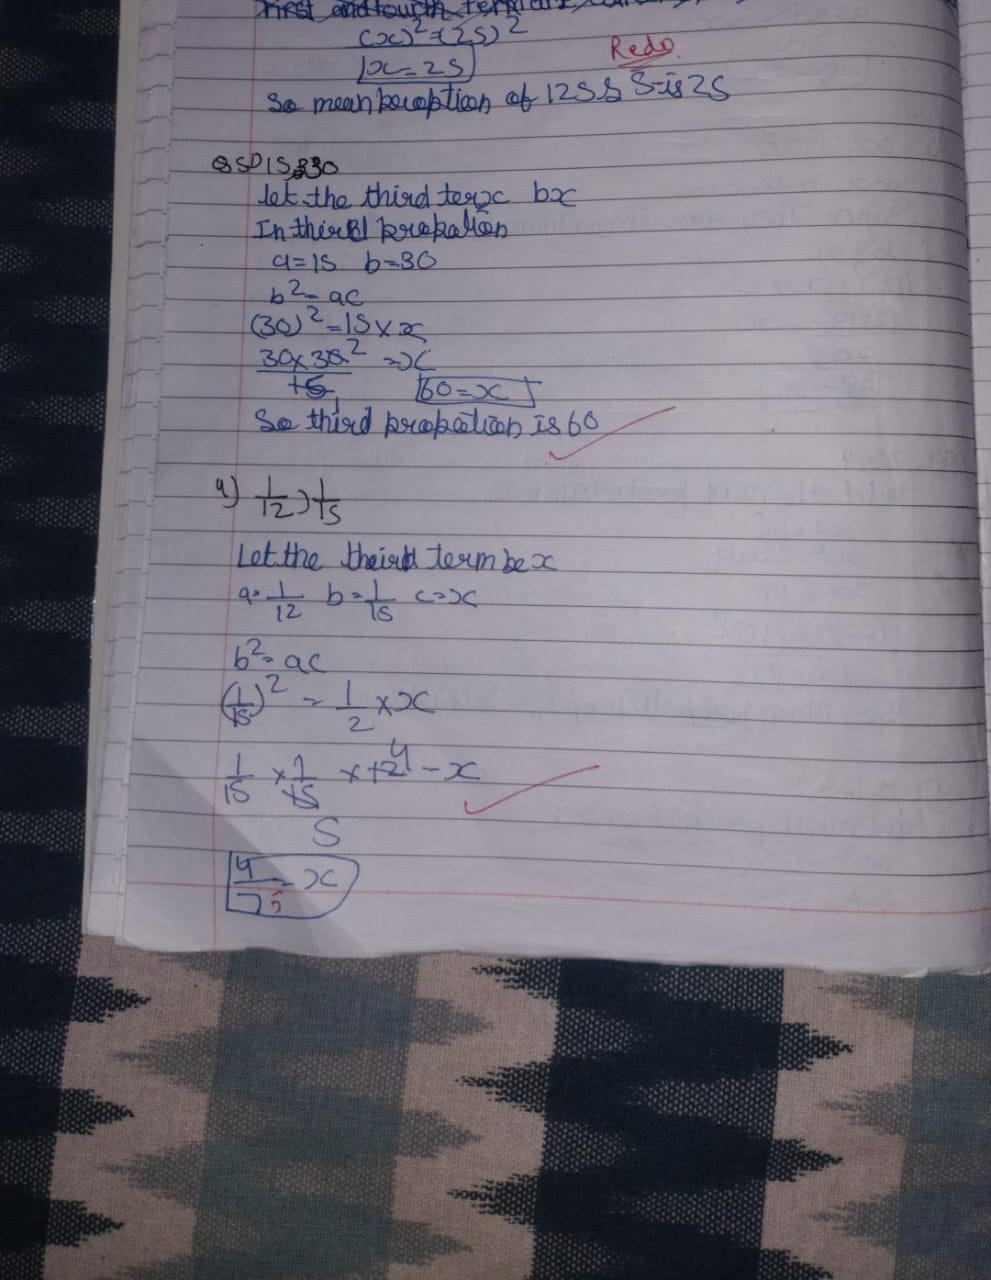 First and fourth term are
(x)²=(25)²
x=25
Redo
So mean paroption of 125 & 5 is 25
Q5P 15,30
let the third terx bx
In third propation
a=15 b=30
b²=ac
(30)²=15×x
30×30² =x
15 1
60=x
So third propation is 60
4) 1/12, 1/15
Let the third term be x
a=1/12 b=1/15 c=x
b²=ac
(1/15)² = 1/2 × x
1/15 × 1/15 × 12 4 = x
5
4/75 = x